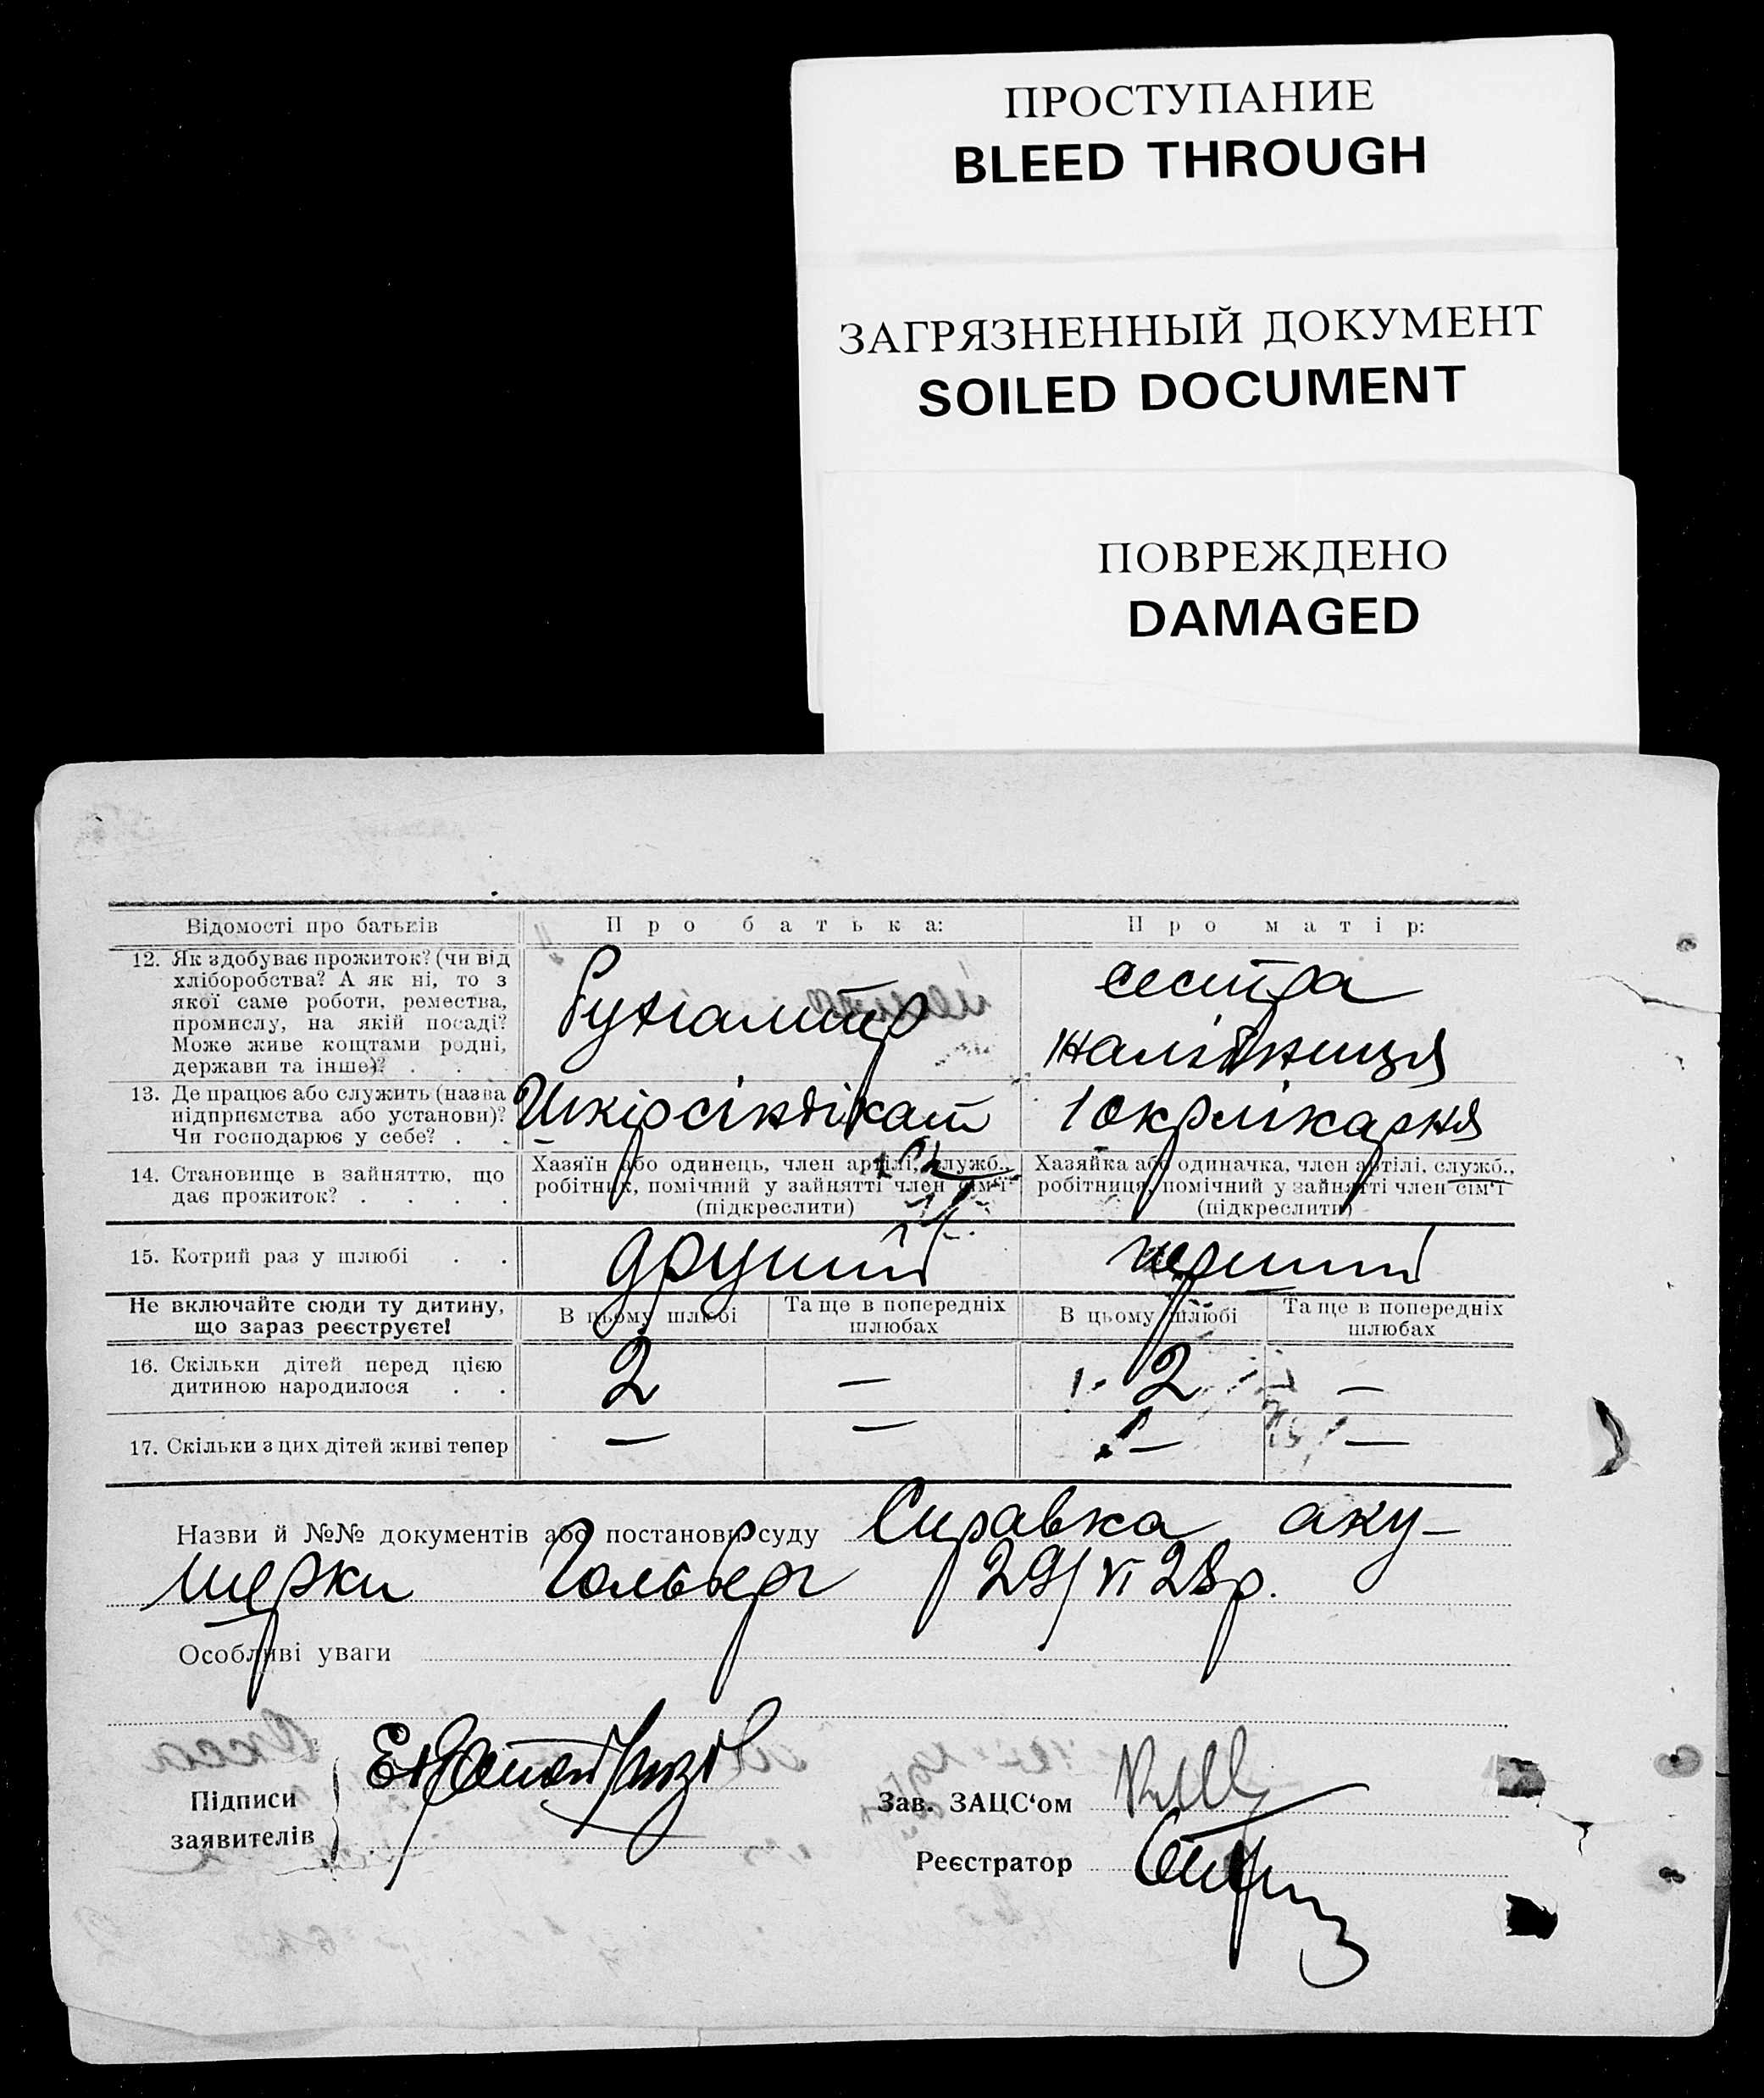 ПРОСТУПАНИЕ
BLEED THROUGH
ЗАГРЯЗНЕННЫЙ ДОКУМЕНТ
SOILED DOCUMENT
ПОВРЕЖДЕНО
DAMAGED
Відомості про батьків
Про батька:
Про матір:
12. Як здобуває прожиток? (чи від
хліборобства? А як ні, то з
якої саме роботи, ремества,
промислу, на якій посаді?
Може живе коштами родні,
держави та інше)? . . .
Бухгалтер
сестра
жалібниця
13. Де працює або служить (назва
підприємства або установи)?
Чи господарює у себе? . .
Шкірсіндікат
1 окрлікарня
14. Становище в зайняттю, що
дає прожиток? . . . .
Хазяїн або одинець, член артілі, служб.,
робітник, помічний у зайнятті член сім'ї
(підкреслити)
Хазяйка або одиначка, член артілі, служб.,
робітниця, помічний у зайнятті член сім'ї
(підкреслити)
15. Котрий раз у шлюбі . .
другий
перший
Не включайте сюди ту дитину,
що зараз реєструєте!
В цьому шлюбі
Та ще в попередніх
шлюбах
В цьому шлюбі
Та ще в попередніх
шлюбах
16. Скільки дітей перед цією
дитиною народилося . .
2 — 2 —
17. Скільки з цих дітей живі тепер
— — — —
Назви й №№ документів або постанови суду Справка аку-
шерки Гольберг 29/VI 28р.
Особливі уваги
Підписи
заявителів
Зав. ЗАЦС‘ом
Реєстратор